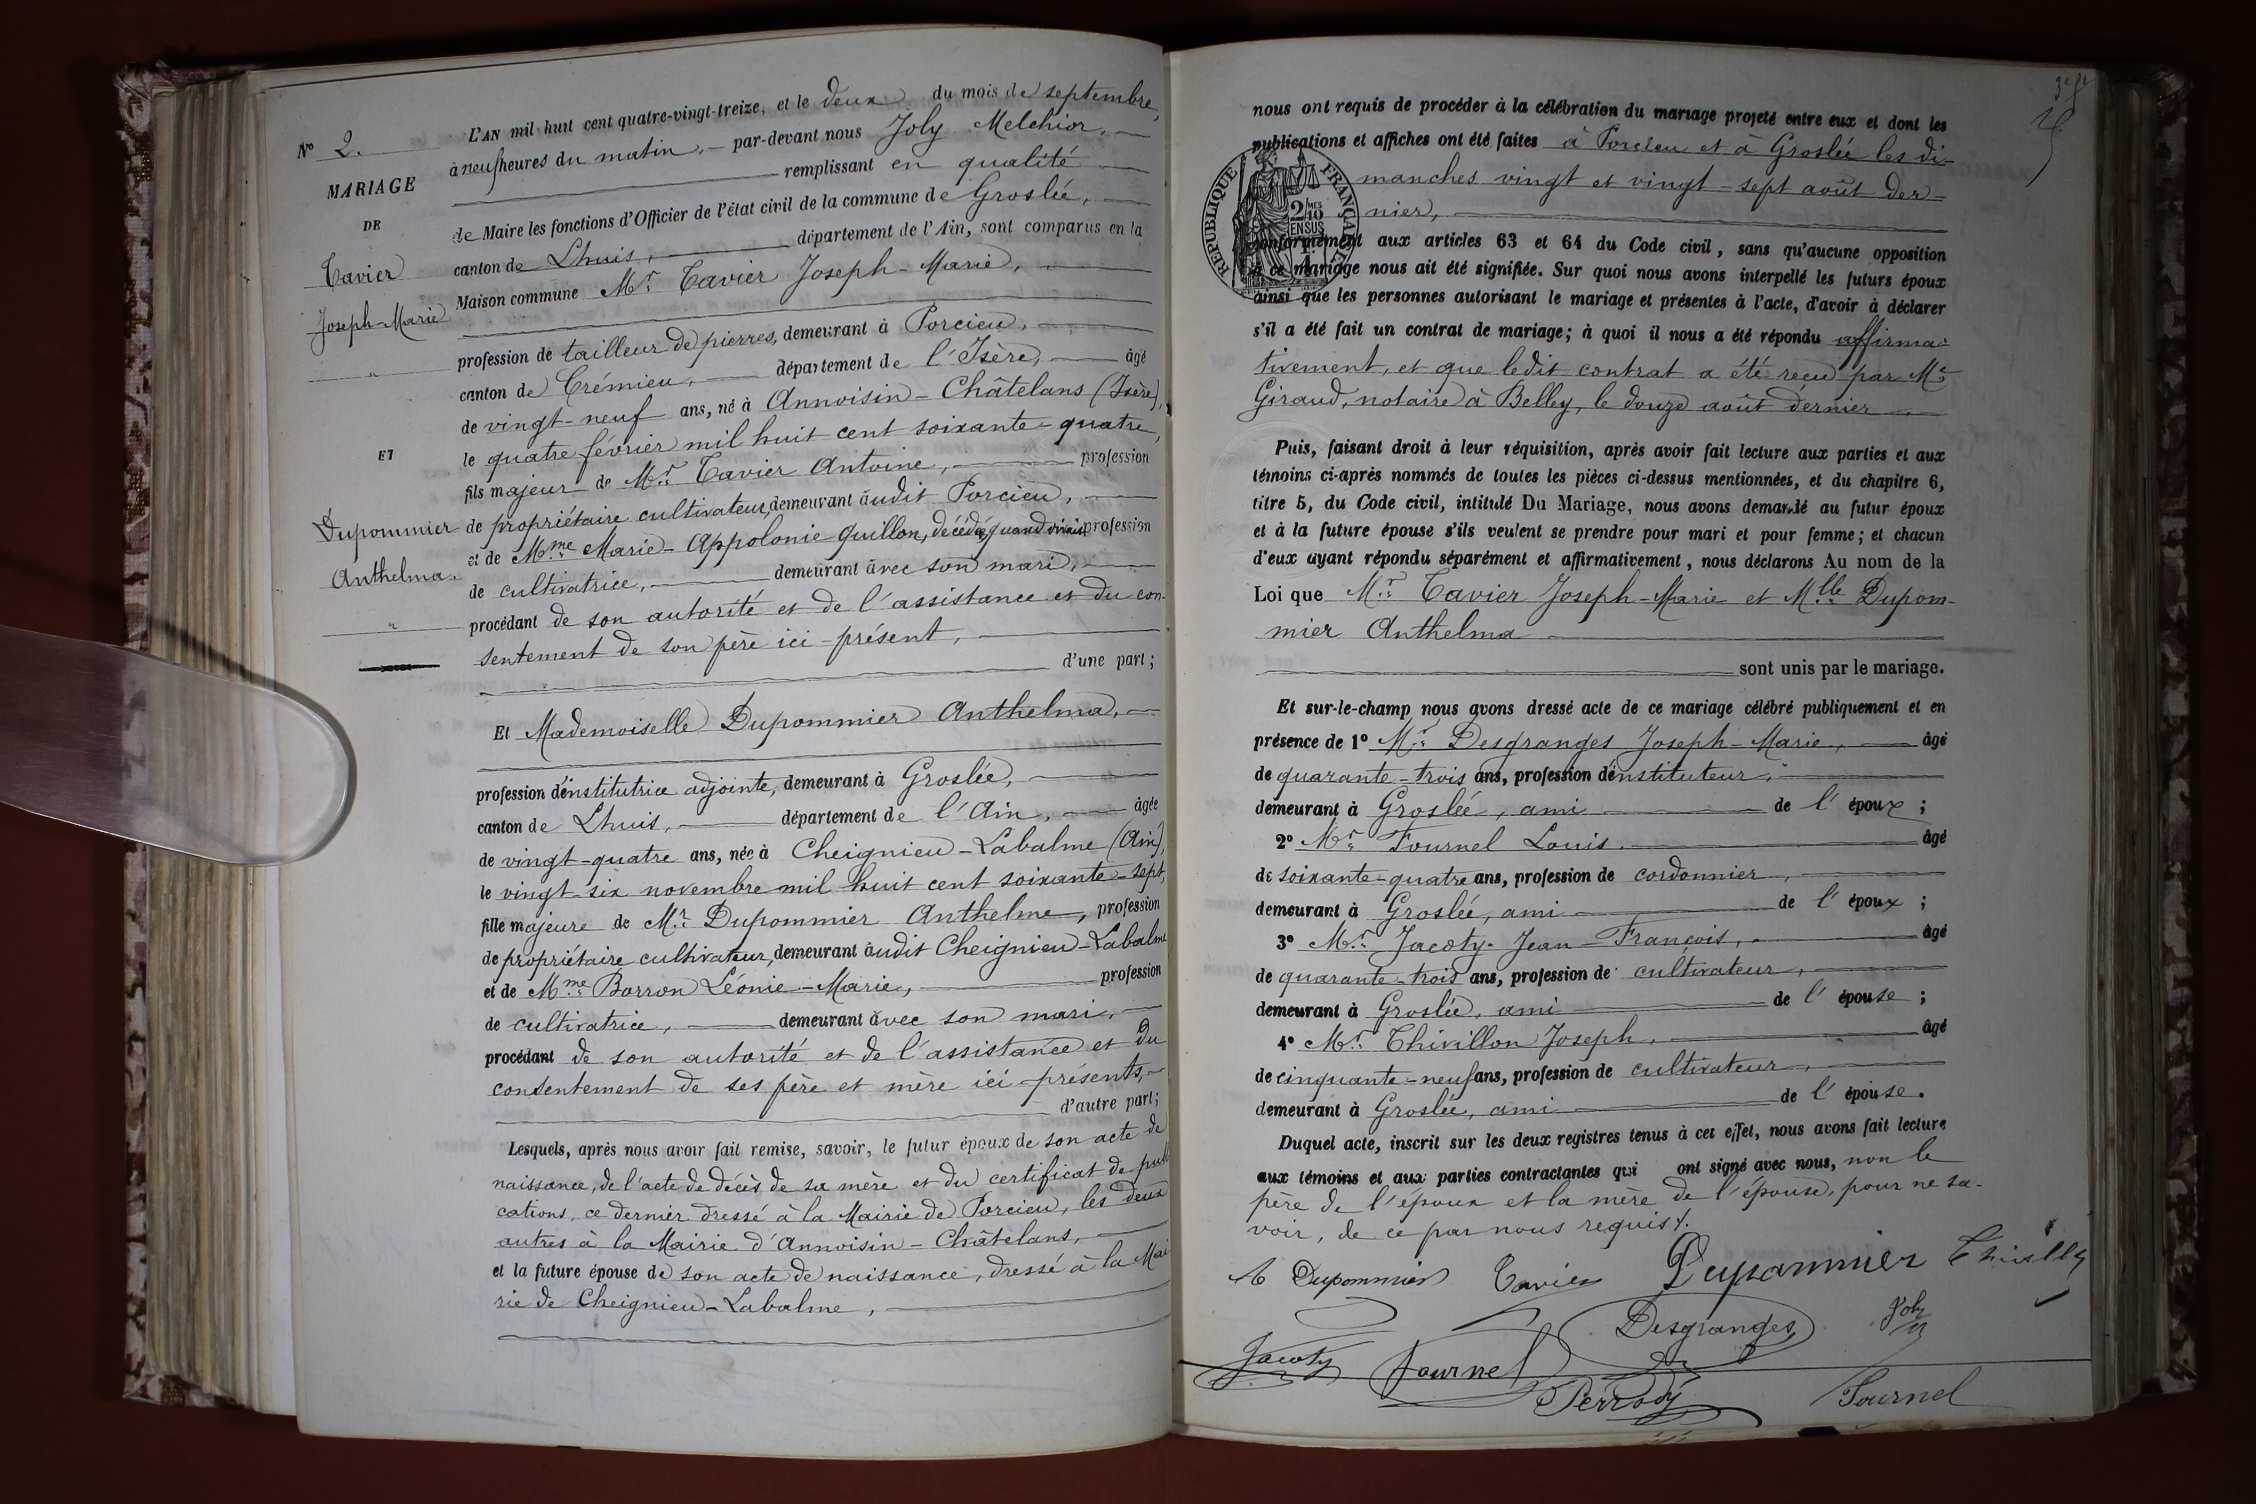 N° 2.
MARIAGE
DE
Tavier
Joseph-Marie
"
ET
Dupommier
Anthelma.
"
L'AN mil huit cent quatre-vingt-treize, et le deux du mois de septembre,
à neuf heures du matin, par-devant nous Joly Melchior,
remplissant en qualité
de Maire les fonctions d'Officier de l'état civil de la commune de Groslée,
canton de Lhuis, département de l'Ain, sont comparus en la
Maison commune Mr. Tavier Joseph-Marie,
profession de tailleur de pierres, demeurant à Porcieu,
canton de Crémieu, département de l'Isère, âgé
de vingt-neuf ans, né à Annoisin-Châtelans (Isère),
le quatre février mil huit cent soixante-quatre,
fils majeur de Mr. Tavier Antoine, profession
de propriétaire cultivateur, demeurant audit Porcieu,
et de Mme Marie-Appolonie Quillon, décédée, quand vivait profession
de cultivatrice, demeurant avec son mari,
procédant de son autorité et de l'assistance et du con-
sentement de son père ici-présent,
d'une part;
Et Mademoiselle Dupommier Anthelma,
profession d'institutrice adjointe, demeurant à Groslée,
canton de Lhuis, département de l'Ain, âgée
de vingt-quatre ans, née à Cheignieu-Labalme (Ain),
le vingt-six novembre mil huit cent soixante-sept,
fille majeure de Mr. Dupommier Anthelme, profession
de propriétaire cultivateur, demeurant audit Cheignieu-Labalme
et de Mme Borron Léonie-Marie, profession
de cultivatrice, demeurant avec son mari,
procédant de son autorité et de l'assistance et du
consentement de ses père et mère ici-présents,
d'autre part;
Lesquels, après nous avoir fait remise, savoir, le futur époux de son acte de
naissance, de l'acte de décès de sa mère et du certificat de publi
cations, ce dernier dressé à la Mairie de Porcieu, les deux
autres à la Mairie d'Annoisin-Châtelans,
et la future épouse de son acte de naissance, dressé à la Mai
rie de Cheignieu-Labalme,
nous ont requis de procéder à la célébration du mariage projeté entre eux et dont les
publications et affiches ont été faites à Porcieu et à Groslée les di-
manches vingt et vingt-sept août der-
nier,
RÉPUBLIQUE FRANÇAISE
2/10 MES
EN SUS
conformément aux articles 63 et 64 du Code civil, sans qu'aucune opposition
à ce mariage nous ait été signifiée. Sur quoi nous avons interpellé les futurs époux
ainsi que les personnes autorisant le mariage et présentes à l'acte, d'avoir à déclarer
s'il a été fait un contrat de mariage; à quoi il nous a été répondu affirma-
tivement, et que ledit contrat a été reçu par Me
Giraud, notaire à Belley, le douze août dernier
Puis, faisant droit à leur réquisition, après avoir fait lecture aux parties et aux
témoins ci-après nommés de toutes les pièces ci-dessus mentionnées, et du chapitre 6,
titre 5, du Code civil, intitulé Du Mariage, nous avons demandé au futur époux
et à la future épouse s'ils veulent se prendre pour mari et pour femme; et chacun
d'eux ayant répondu séparément et affirmativement, nous déclarons Au nom de la
Loi que Mr. Tavier Joseph-Marie et Mlle Dupom-
mier Anthelma
sont unis par le mariage.
Et sur-le-champ nous avons dressé acte de ce mariage célébré publiquement et en
présence de 1° Mr. Desgranges Joseph-Marie, âgé
de quarante-trois ans, profession d'instituteur,
demeurant à Groslée, ami de l'époux;
2° Mr. Fournel Louis. âgé
de soixante-quatre ans, profession de cordonnier,
demeurant à Groslée, ami de l'époux;
3° Mr. Jacoty Jean-François, âgé
de quarante-trois ans, profession de cultivateur,
demeurant à Groslée, ami de l'épouse;
4° Mr. Thivillon Joseph, âgé
de cinquante-neuf ans, profession de cultivateur,
demeurant à Groslée, ami de l'épouse.
Duquel acte, inscrit sur les deux registres tenus à cet effet, nous avons fait lecture
aux témoins et aux parties contractantes qui ont signé avec nous, non le
père de l'époux et la mère de l'épouse, pour ne sa-
voir, de ce par nous requis.
A Dupommier Tavier Dupommier
Desgranges Joly
Jacoty Fournel
Perrody Fournel